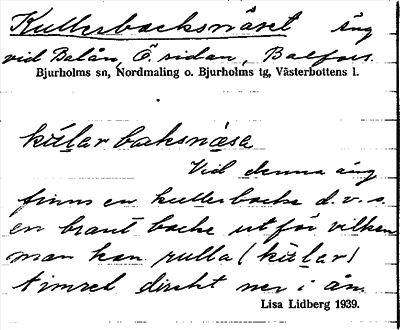 Kullerbacksnäset äng
vid Balån, Ö. sidan, Balfors.
Bjurholms sn, Nordmaling o. Bjurholms tg, Västerbottens l.
kúlarbaksnæsa
Vid denna äng
finns en kullerbacke d.v.s.
en brant backe utför vilken
man kan rulla (kúlar)
timret direkt ner i ån
Lisa Lidberg 1939.